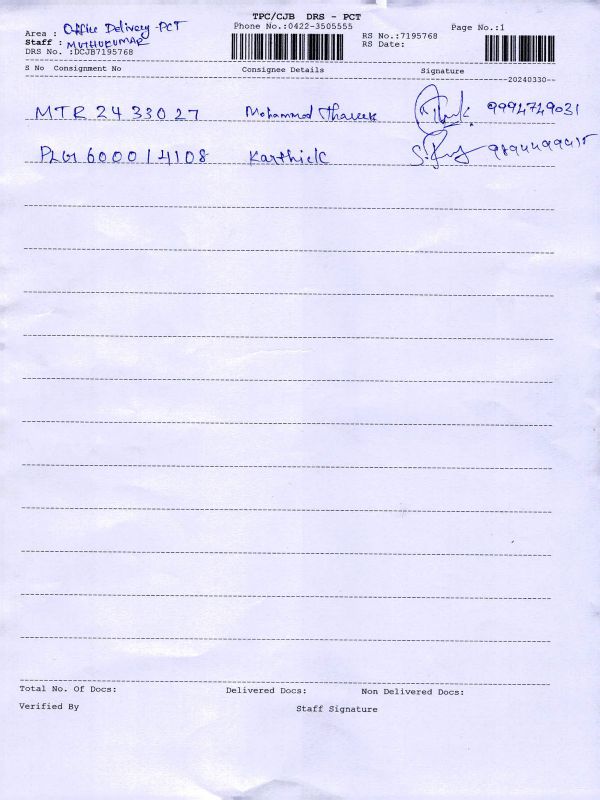 TPC/CJB DRS - PCT
Area : Office Delivery-PCT Phone No.:0422-3505555 RS No.:7195768 Page No.:1
Staff : MUTHUKUMAR RS Date:
DRS No. :DCJB7195768
S No Consignment No Consignee Details Signature
20240330
MTR 2433027 Mohammed Thareek 9994749031
PLG1 600014108 Karthick
Total No. Of Docs: Delivered Docs: Non Delivered Docs:
Verified By Staff Signature